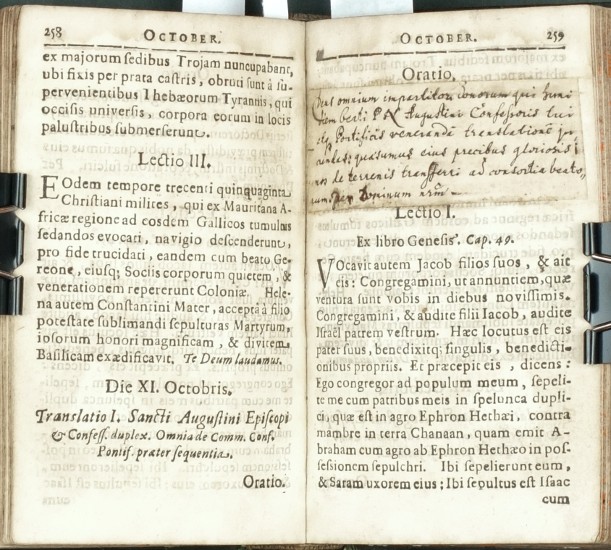 258 OCTOBER.
ex majorum sedibus Trojam nuncupabant,
ubi fixis per prata castris, obruti sunt à su-
pervenientibus Thebæorum Tyrannis, qui
occisis universis, corpora eorum in locis
palustribus submerserunt.
Lectio III.
EOdem tempore trecenti quinquaginta
Christiani milites, qui ex Mauritana A-
fricæ regione ad eosdem Gallicos tumultus
sedandos evocati, navigio descenderunt,
pro fide trucidati, eandem cum beato Ge-
reone, eiusq; Sociis corporum quietem, &
venerationem repererunt Coloniæ. Hele-
na autem Constantini Mater, acceptâ à filio
potestate sublimandi sepulturas Martyrum,
iosorum honori magnificam, & divitem
Basilicam exædificavit. Te Deum laudamus.
Die XI. Octobris.
Translatio I. Sancti Augustini Episcopi
& Confess. duplex. Omnia de Comm. Conf.
Pontif. præter sequentia.
Oratio.
OCTOBER. 259
Oratio.
Deus omnium impartitor bonorum qui
beati P. N. Augustini Confessoris tui
Pontificis veneranda translatione
quæsumus eius precibus gloriosis
nos de terrenis transferri ad consortia beato,
rum per Dominum nrm
Lectio I.
Ex libro Genesis. Cap. 49.
VOcavit autem Jacob filios suos, & ait
eis: Congregamini, ut annuntiem, quæ
ventura sunt vobis in diebus novissimis.
Congregamini, & audite filii Iacob, audite
Israël patrem vestrum. Hæc locutus est eis
pater suus, benedixitq; singulis, benedicti-
onibus propriis. Et præcepit eis, dicens:
Ego congregor ad populum meum, sepeli-
te me cum patribus meis in spelunca dupli-
ci, quæ est in agro Ephron Hethæi. contra
mambre in terra Chanaan, quam emit A-
braham cum agro ab Ephron Hethæo in pos-
sessionem sepulchri. Ibi sepelierunt eum,
& Saram uxorem eius; Ibi sepultus est Isaac
cum